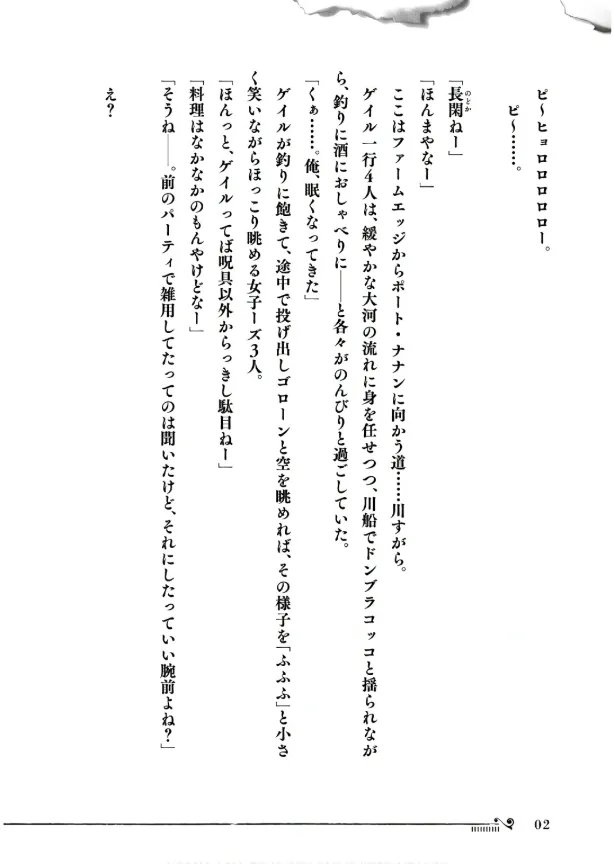 ピ～ヒョロロロロロー。
ピ～……。
「長閑ねー」
のどか
「ほんまやなー」
ここはファームエッジからポート・ナナンに向かう道……川すがら。
ゲイル一行4人は、緩やかな大河の流れに身を任せつつ、川船でドンブラコッコと揺られなが
ら、釣りに酒におしゃべりに――と各々がのんびりと過ごしていた。
「くぁ……。俺、眠くなってきた」
ゲイルが釣りに飽きて、途中で投げ出しゴローンと空を眺めれば、その様子を「ふふふ」と小さ
く笑いながらほっこり眺める女子ーズ3人。
「ほんっと、ゲイルってば呪具以外からっきし駄目ねー」
「料理はなかなかのもんやけどなー」
「そうね――。前のパーティで雑用してたってのは聞いたけど、それにしたっていい腕前よね?」
え?
02